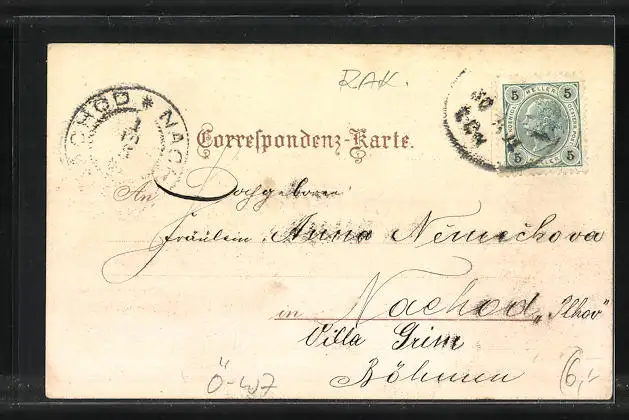 RAK.
NACHOD * NACH
5 HELLER 5
5 HELLER 5
Correspondenz-Karte.
An Hochgeboren
Fräulein Anna Němečkova
in Nachod, "Plhov"
Villa Grim
Böhmen
Ö-407
6,-